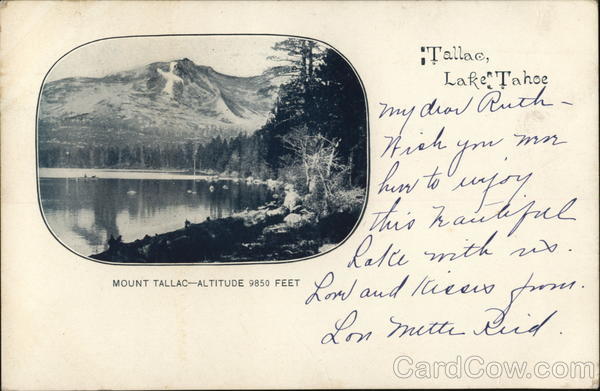 Tallac,
Lake Tahoe
My dear Ruth –
Wish you were
here to enjoy
this beautiful
Lake with us.
Love and Kisses from.
Lon Mette Reid.
MOUNT TALLAC—ALTITUDE 9850 FEET
CardCow.com